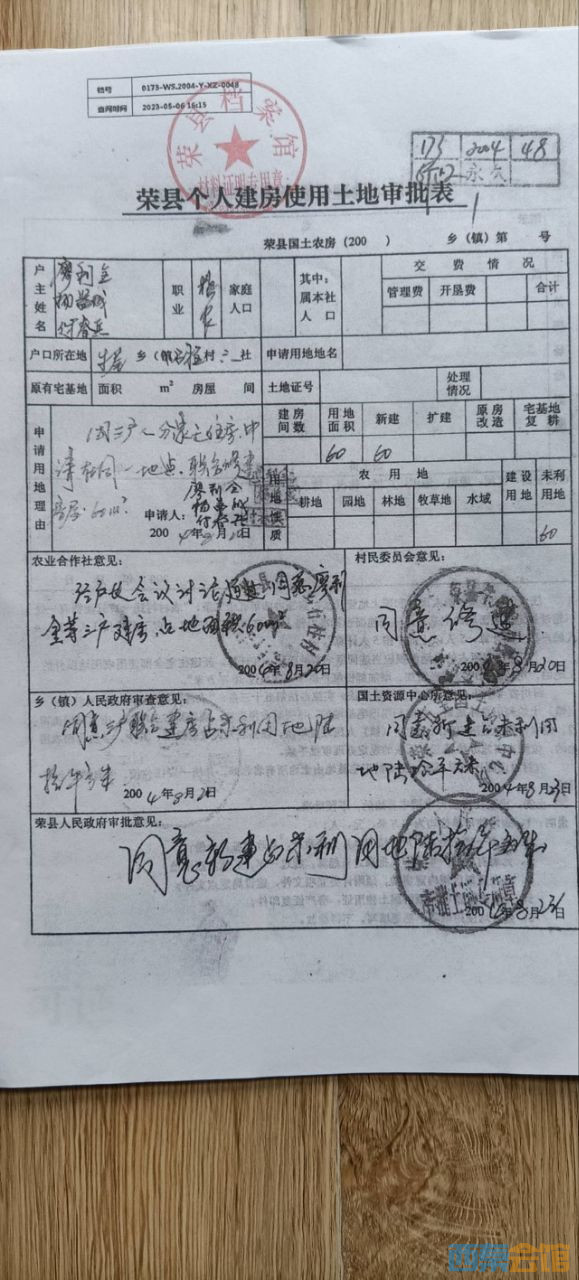 档号 0173-WS.2004-Y-XZ-0048
查阅时间 2023-05-06 16:15
荣县档案馆
材料证明专用章
173 2004 48
永久
荣县个人建房使用土地审批表
荣县国土农房(200 ) 乡(镇)第 号
户主姓名 廖利全
职业 务农 家庭人口 其中:属本社人口 交费情况
管理费 开垦费 合计
户口所在地 乡(镇) 村 三 社 申请用地地名
原有宅基地 面积 m² 房屋 间 土地证号 处理情况
申请用地理由
建房间数 用地面积 新建 扩建 原房改造 宅基地复耕
60 60
因三户人分家无住房.申
请在同一地点.联合修建
住房.60m²
申请人: 廖利全
2004年8月20日
用地性质 农用地 建设用地 未利用地
耕地 园地 林地 牧草地 水域
60
农业合作社意见: 村民委员会意见:
经户长会议讨论通过同意廖利
全等三户建房占地面积60m²
2004年8月20日
同意修建.
2004年8月20日
乡(镇)人民政府审查意见: 国土资源中心所意见:
同意三户联合建房占未利用地陆
拾平方米 2004年8月21日
同意新建占未利用
地陆拾平方米
2004年8月23日
荣县人民政府审批意见:
同意新建占未利用地陆拾平方米
2004年8月23日
西祠会馆